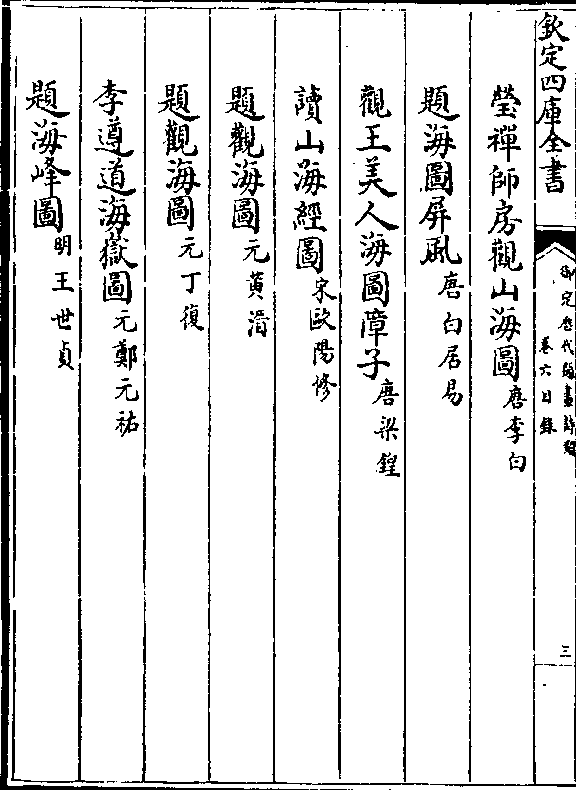 欽定四庫全書
御定歴代題畫詩類
卷六目錄
三
瑩禪師房觀山海圖 唐李白
題海圖屏風 唐白居易
觀王美人海圖障子 唐梁鍠
讀山海經圖 宋歐陽修
題觀海圖 元黃溍
題觀海圖 元丁復
李遵道海嶽圖 元鄭元祐
題海峰圖 明王世貞